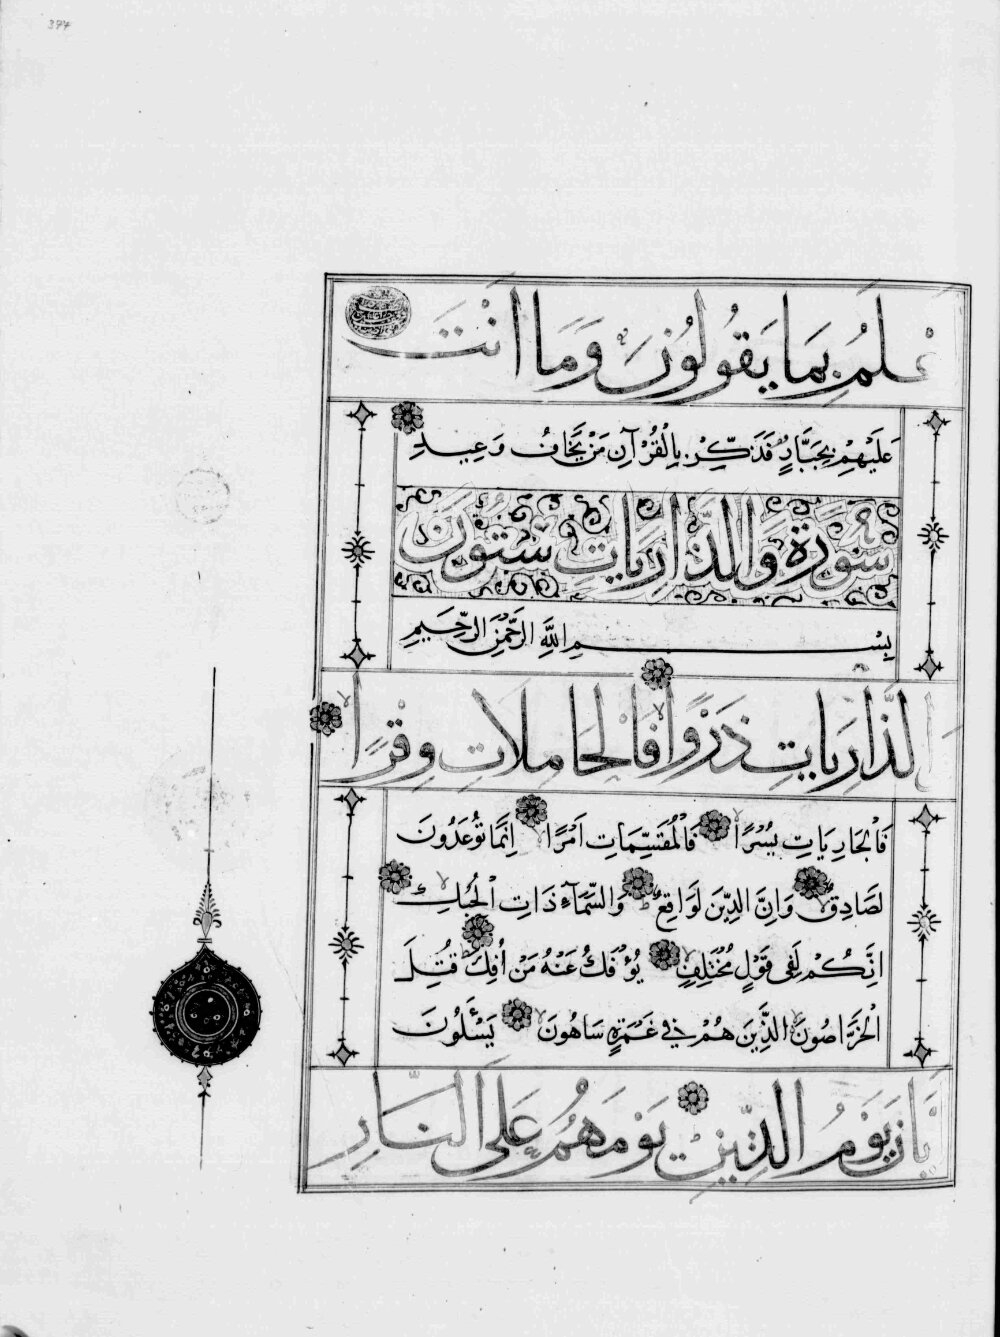 397
علَمُ بِمَا يَقُولُونَ وَمَا اَنْتَ
عَلَيْهِمْ بِجَبَّارٍ فَذَكِّرْ بِالْقُرْآنِ مَنْ يَخَافُ وَعِيدِ
سُورَةُ وَالذَّارِيَاتِ سِتُّونَ
بِسْمِ اللَّهِ الرَّحْمٰنِ الرَّحِيمِ
الذَّارِيَاتِ ذَرْوًا فَالْحَامِلَاتِ وِقْرًا
فَالْجَارِيَاتِ يُسْرًا فَالْمُقَسِّمَاتِ اَمْرًا اِنَّمَا تُوعَدُونَ
لَصَادِقٌ وَاِنَّ الدِّينَ لَوَاقِعٌ وَالسَّمَآءِ ذَاتِ الْحُبُكِ
اِنَّكُمْ لَفِى قَوْلٍ مُخْتَلِفٍ يُؤْفَكُ عَنْهُ مَنْ اُفِكَ قُتِلَ
الْخَرَّاصُونَ الَّذِينَ هُمْ فِى غَمْرَةٍ سَاهُونَ يَسْـَٔلُونَ
اَيَّانَ يَوْمُ الدِّينِ يَوْمَ هُمْ عَلَى النَّارِ